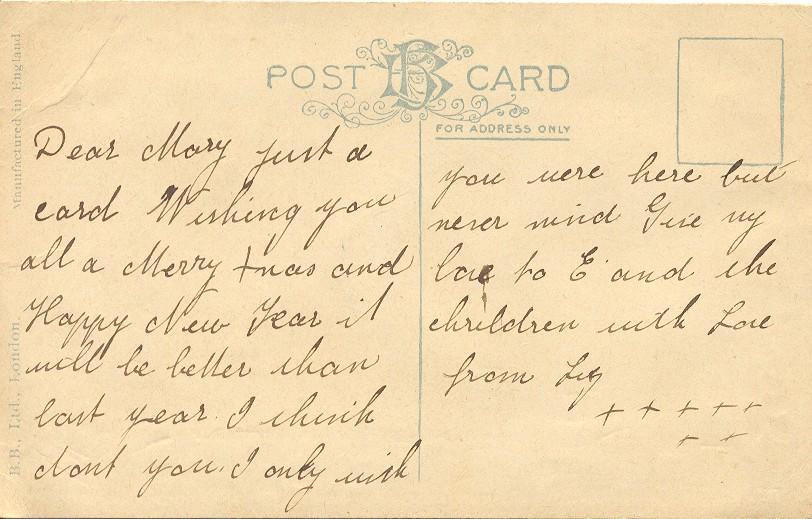 POST BB CARD
FOR ADDRESS ONLY
Manufactured in England
B.B., Ltd., London.
Dear Mary just a
card Wishing you
all a Merry Xmas and
Happy New Year it
will be better than
last year. I think
dont you. I only wish
you were here but
never mind Give my
love to E and the
children with Love
from
+ + + + +
+ +